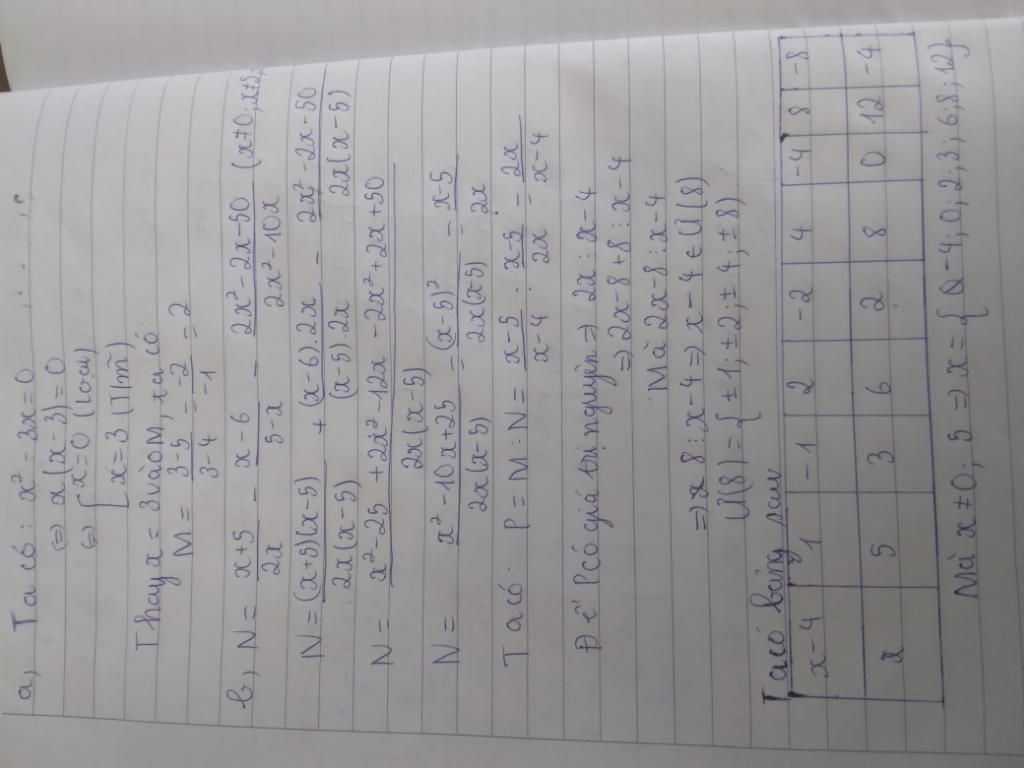 a, Ta có: x² - 3x = 0
⇔ x(x-3) = 0
⇔ [x=0 (loại)
[x=3 (TM)
Thay x = 3 vào M, ta có:
M = (3-5)/(3-4) = (-2)/(-1) = 2
b, N = (x+5)/(2x) - (x-6)/(5-x) - (2x²-2x-50)/(2x²-10x) (x≠0; x≠5
N = ((x+5)(x-5))/(2x(x-5)) + ((x-6).2x)/((x-5).2x) - (2x²-2x-50)/(2x(x-5))
N = (x²-25+2x²-12x-2x²+2x+50)/(2x(x-5))
N = (x²-10x+25)/(2x(x-5)) = (x-5)²/(2x(x-5)) = (x-5)/(2x)
Ta có: P = M : N = (x-5)/(x-4) : (x-5)/(2x) = (2x)/(x-4)
Để P có giá trị nguyên ⇒ 2x ⋮ x-4
⇒ 2x-8+8 ⋮ x-4
Mà 2x-8 ⋮ x-4
⇒ 8 ⋮ x-4 ⇒ x-4 ∈ Ư(8)
Ư(8) = {±1, ±2, ±4, ±8)
Ta có bảng sau
x-4 1 -1 2 -2 4 -4 8 -8
x 5 3 6 2 8 0 12 -4
Mà x≠0; 5 ⇒ x = { -4; 0; 2; 3; 6; 8; 12}